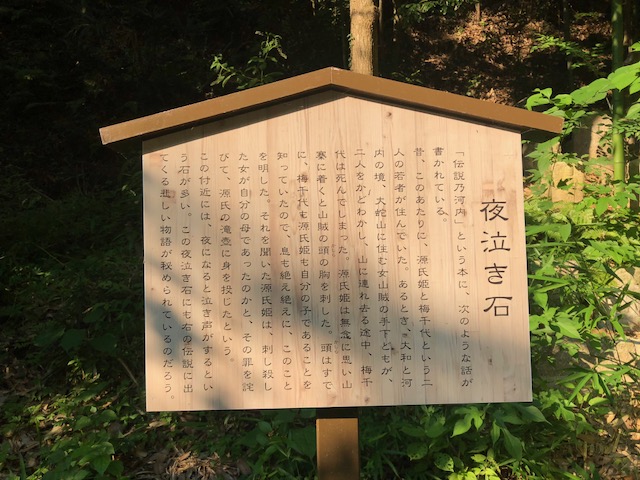 夜泣き石
「伝説乃河内」という本に、次のような話が
書かれている。
昔、このあたりに、源氏姫と梅千代という二
人の若者が住んでいた。あるとき、大和と河
内の境、大蛇山に住む女山賊の手下どもが、
二人をかどわかし、山に連れ去る途中、梅千
代は死んでしまった。源氏姫は無念に思い山
塞に着くと山賊の頭の胸を刺した。頭はすで
に、梅千代も源氏姫も自分の子であることを
知っていたので、息も絶え絶えに、このこと
を明した。それを聞いた源氏姫は、刺し殺し
た女が自分の母であったのかと、その罪を詫
びて、源氏の滝壺に身を投じたという。
この付近には、夜になると泣き声がするとい
う石が多い。この夜泣き石にも右の伝説に出
てくる悲しい物語が秘められているのだろう。